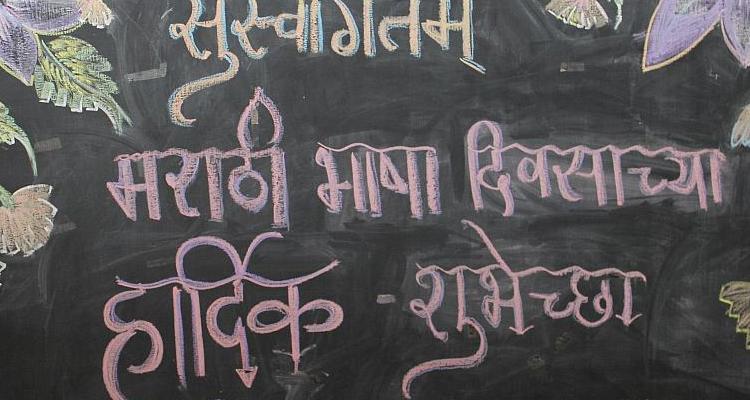 सुस्वागतम्
मराठी भाषा दिवसाच्या
हार्दिक - शुभेच्छा